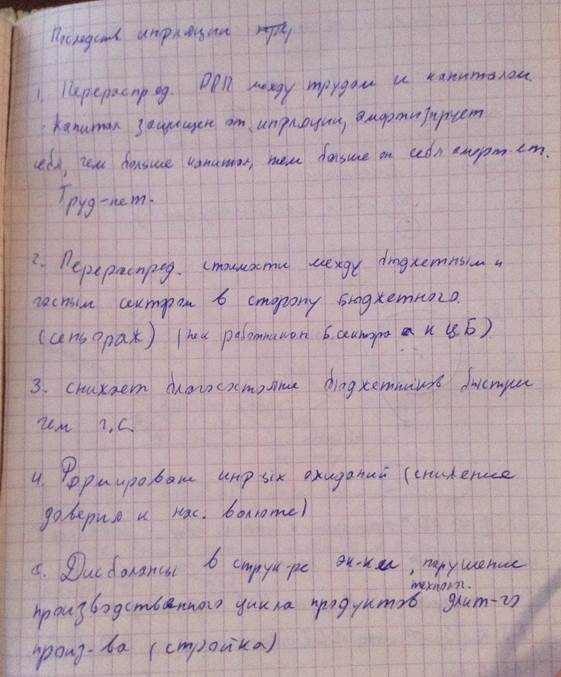 Последств инфляции
1. Перераспред. ДРП между трудом и капиталом.
Капитал защищен от инфляции, амортизирует
себя, чем больше капитал, тем больше он себя аморт-ет.
Труд-нет.
2. Перераспред. стоимости между бюджетным и
частным сектором в сторону бюджетного.
(сеньораж) (не к работникам б. сектора а к ЦБ)
3. снижает благосостояние бюджетников быстрее
чем ч.с.
4. Формирован инф-ых ожиданий (снижение
доверия к нац. валюте)
5. Дисбалансы в струк-ре эк-ки, нарушение
технолог.
производственного цикла продуктов длит-го
произ-ва (стройка)